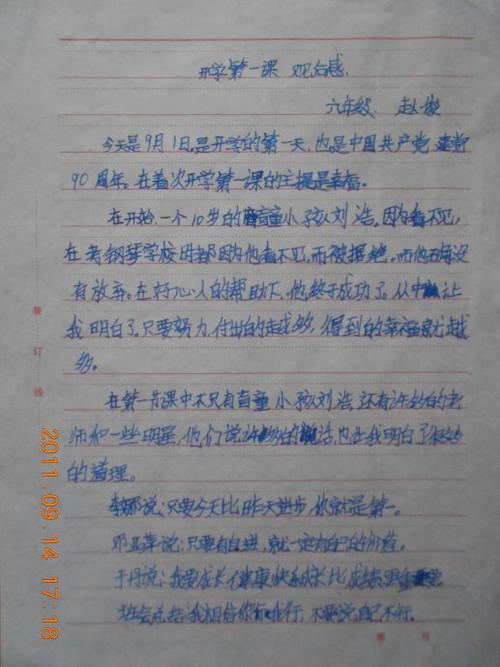 开学第一课 观后感.
六年级. 赵俊
今天是9月1日.是开学的第一天,也是中国共产党 建党
90周年。在着次开学第一课的主提是幸福。
在开始.一个10岁的盲童小孩刘浩。因为看不见,
在考钢琴学校时都因为他看不见,而被拒绝。而他没
有放弃。在好心人的帮助下,他终于成功了。从中让
我明白了.只要努力,付出的越多,得到的幸福就越
多。
在第一节课中不只有盲童小孩刘浩.还有许多的老
师和一些明星,他们说许多的话,也让我明白了很多
的道理。
李娜说:只要今天比昨天进步,你就是第一。
邓亚萍说:只要有自,就一定有自己的价值。
于丹说:我要成长健康快乐成长比,成绩
班会总结:我相信你行我行,不要说自己不行。
装
订
线
2011.09.14 17:18
第 页